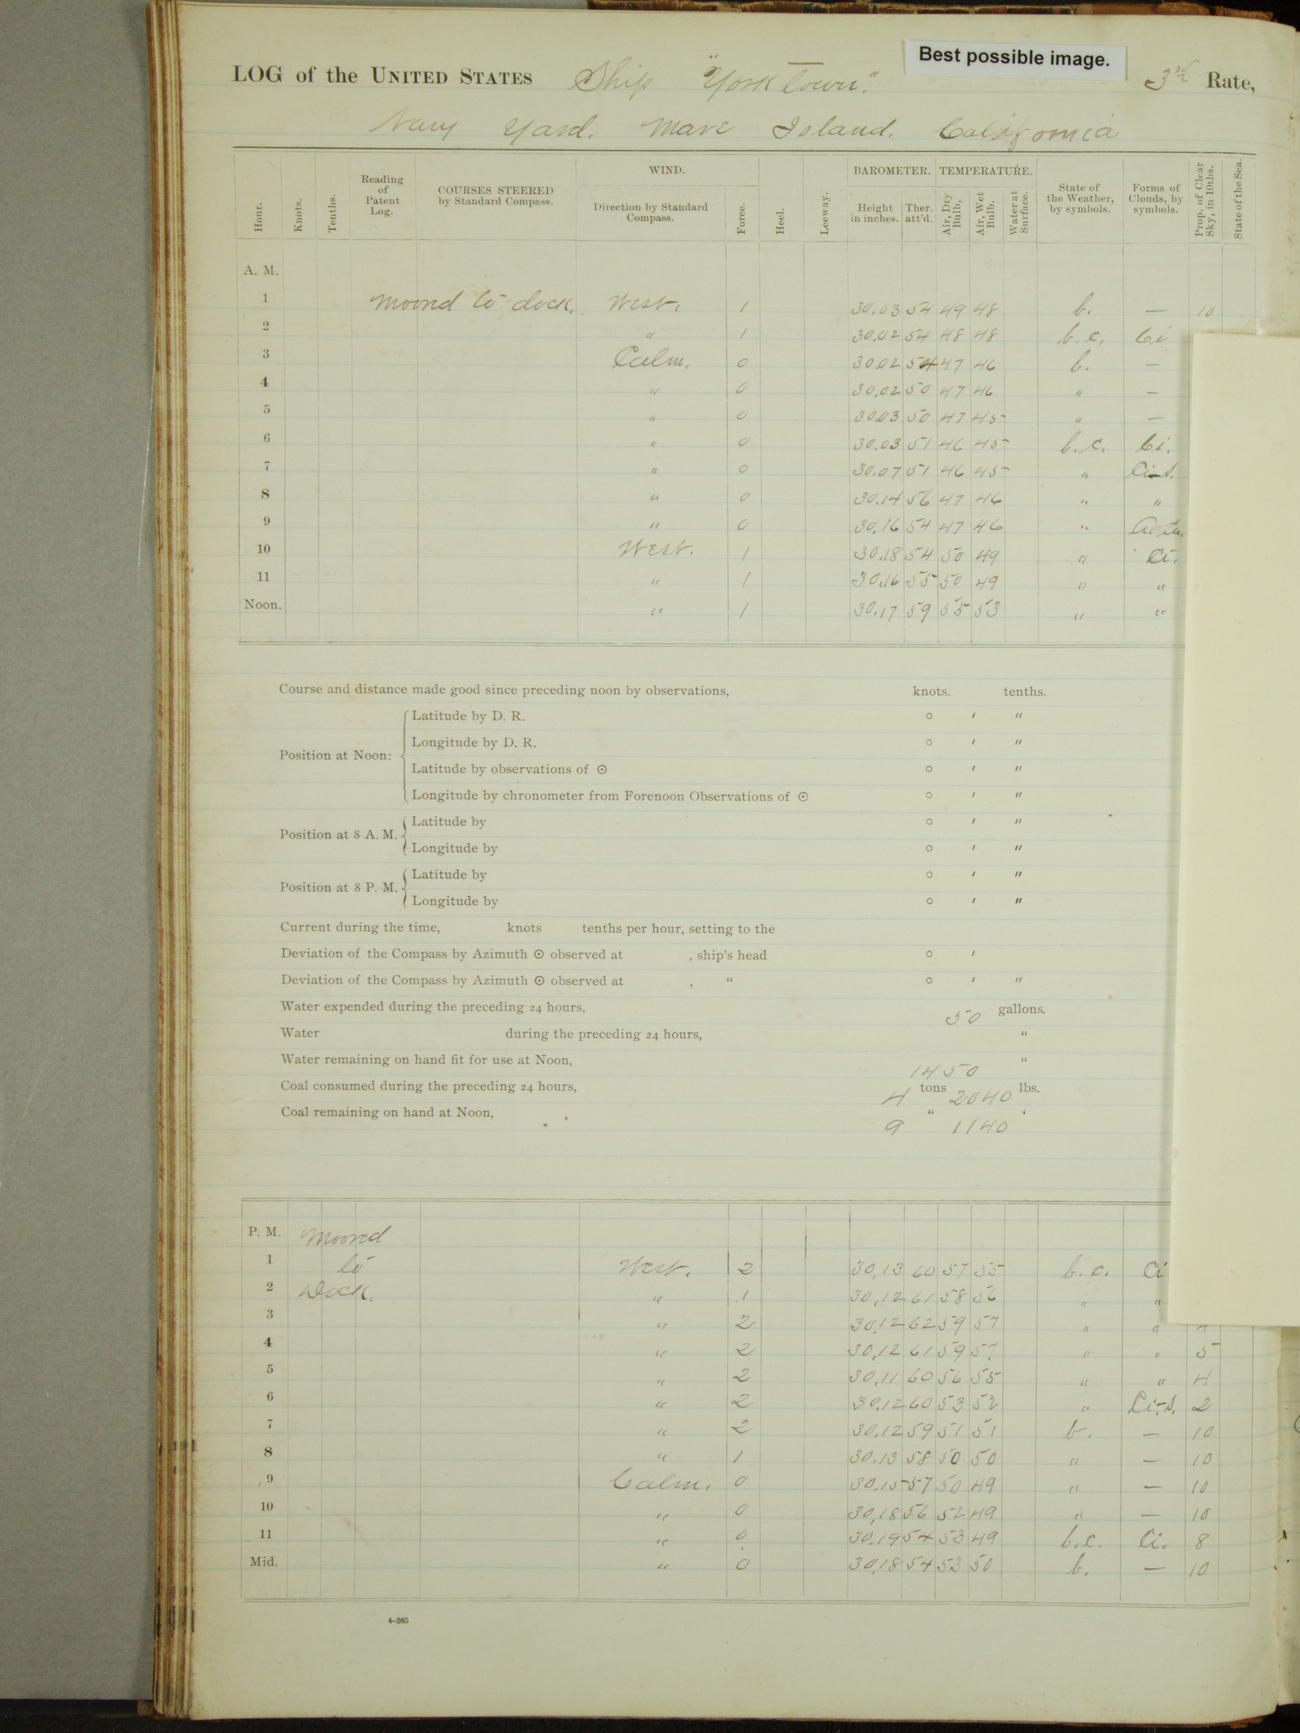 Best possible image.
LOG of the UNITED STATES Ship "Yorktown." 3rd Rate,
Navy Yard. Mare Island. California
Hour. Knots. Tenths. Reading of Patent Log. COURSES STEERED by Standard Compass. WIND. Direction by Standard Compass. Force. Heel. Leeway. BAROMETER. Height in inches. Ther. att'd. TEMPERATURE. Air, Dry Bulb, Air, Wet Bulb. Water at Surface. State of the Weather, by symbols. Forms of Clouds, by symbols. Prop. of Clear Sky, in 10ths. State of the Sea.
A. M.
1 Moored to dock. West. 1 30.03 54 49 48 b. — 10
2 " 1 30.02 54 48 48 b.c. Ci
3 Calm. 0 30.02 54 47 46 b. —
4 " 0 30.02 50 47 46 " —
5 " 0 30.03 50 47 45 " —
6 " 0 30.03 51 46 45 b.c. Ci.
7 " 0 30.07 51 46 45 " Ci-s.
8 " 0 30.14 56 47 46 " "
9 " 0 30.16 54 47 46 "
10 West. 1 30.18 54 50 49 " Ci.
11 " 1 30.16 55 50 49 " "
Noon. " 1 30.17 59 55 53 " "
Course and distance made good since preceding noon by observations, knots. tenths.
Position at Noon:
Latitude by D. R. ° ′ ″
Longitude by D. R. ° ′ ″
Latitude by observations of ☉ ° ′ ″
Longitude by chronometer from Forenoon Observations of ☉ ° ′ ″
Position at 8 A. M.
Latitude by ° ′ ″
Longitude by ° ′ ″
Position at 8 P. M.
Latitude by ° ′ ″
Longitude by ° ′ ″
Current during the time, knots tenths per hour, setting to the
Deviation of the Compass by Azimuth ☉ observed at , ship's head ° ′
Deviation of the Compass by Azimuth ☉ observed at , " ° ′ ″
Water expended during the preceding 24 hours, 50 gallons.
Water during the preceding 24 hours, "
Water remaining on hand fit for use at Noon, 1450 "
Coal consumed during the preceding 24 hours, 4 tons 2040 lbs.
Coal remaining on hand at Noon, 9 " 1140 '
P. M. Moored
1 to West. 2 30.13 60 57 55 b.c. Ci
2 Dock. " 1 30.12 61 58 56 " "
3 " 2 30.12 62 59 57 " "
4 " 2 30.12 61 59 57 " " 5
5 " 2 30.11 60 56 55 " " 4
6 " 2 30.12 60 53 52 " Ci-s. 2
7 " 2 30.12 59 51 51 b. — 10
8 " 1 30.13 58 50 50 " — 10
9 Calm. 0 30.15 57 50 49 " — 10
10 " 0 30.18 56 52 49 " — 10
11 " 0 30.19 54 53 49 b.c. Ci. 8
Mid. " 0 30.18 54 53 50 b. — 10
4-265